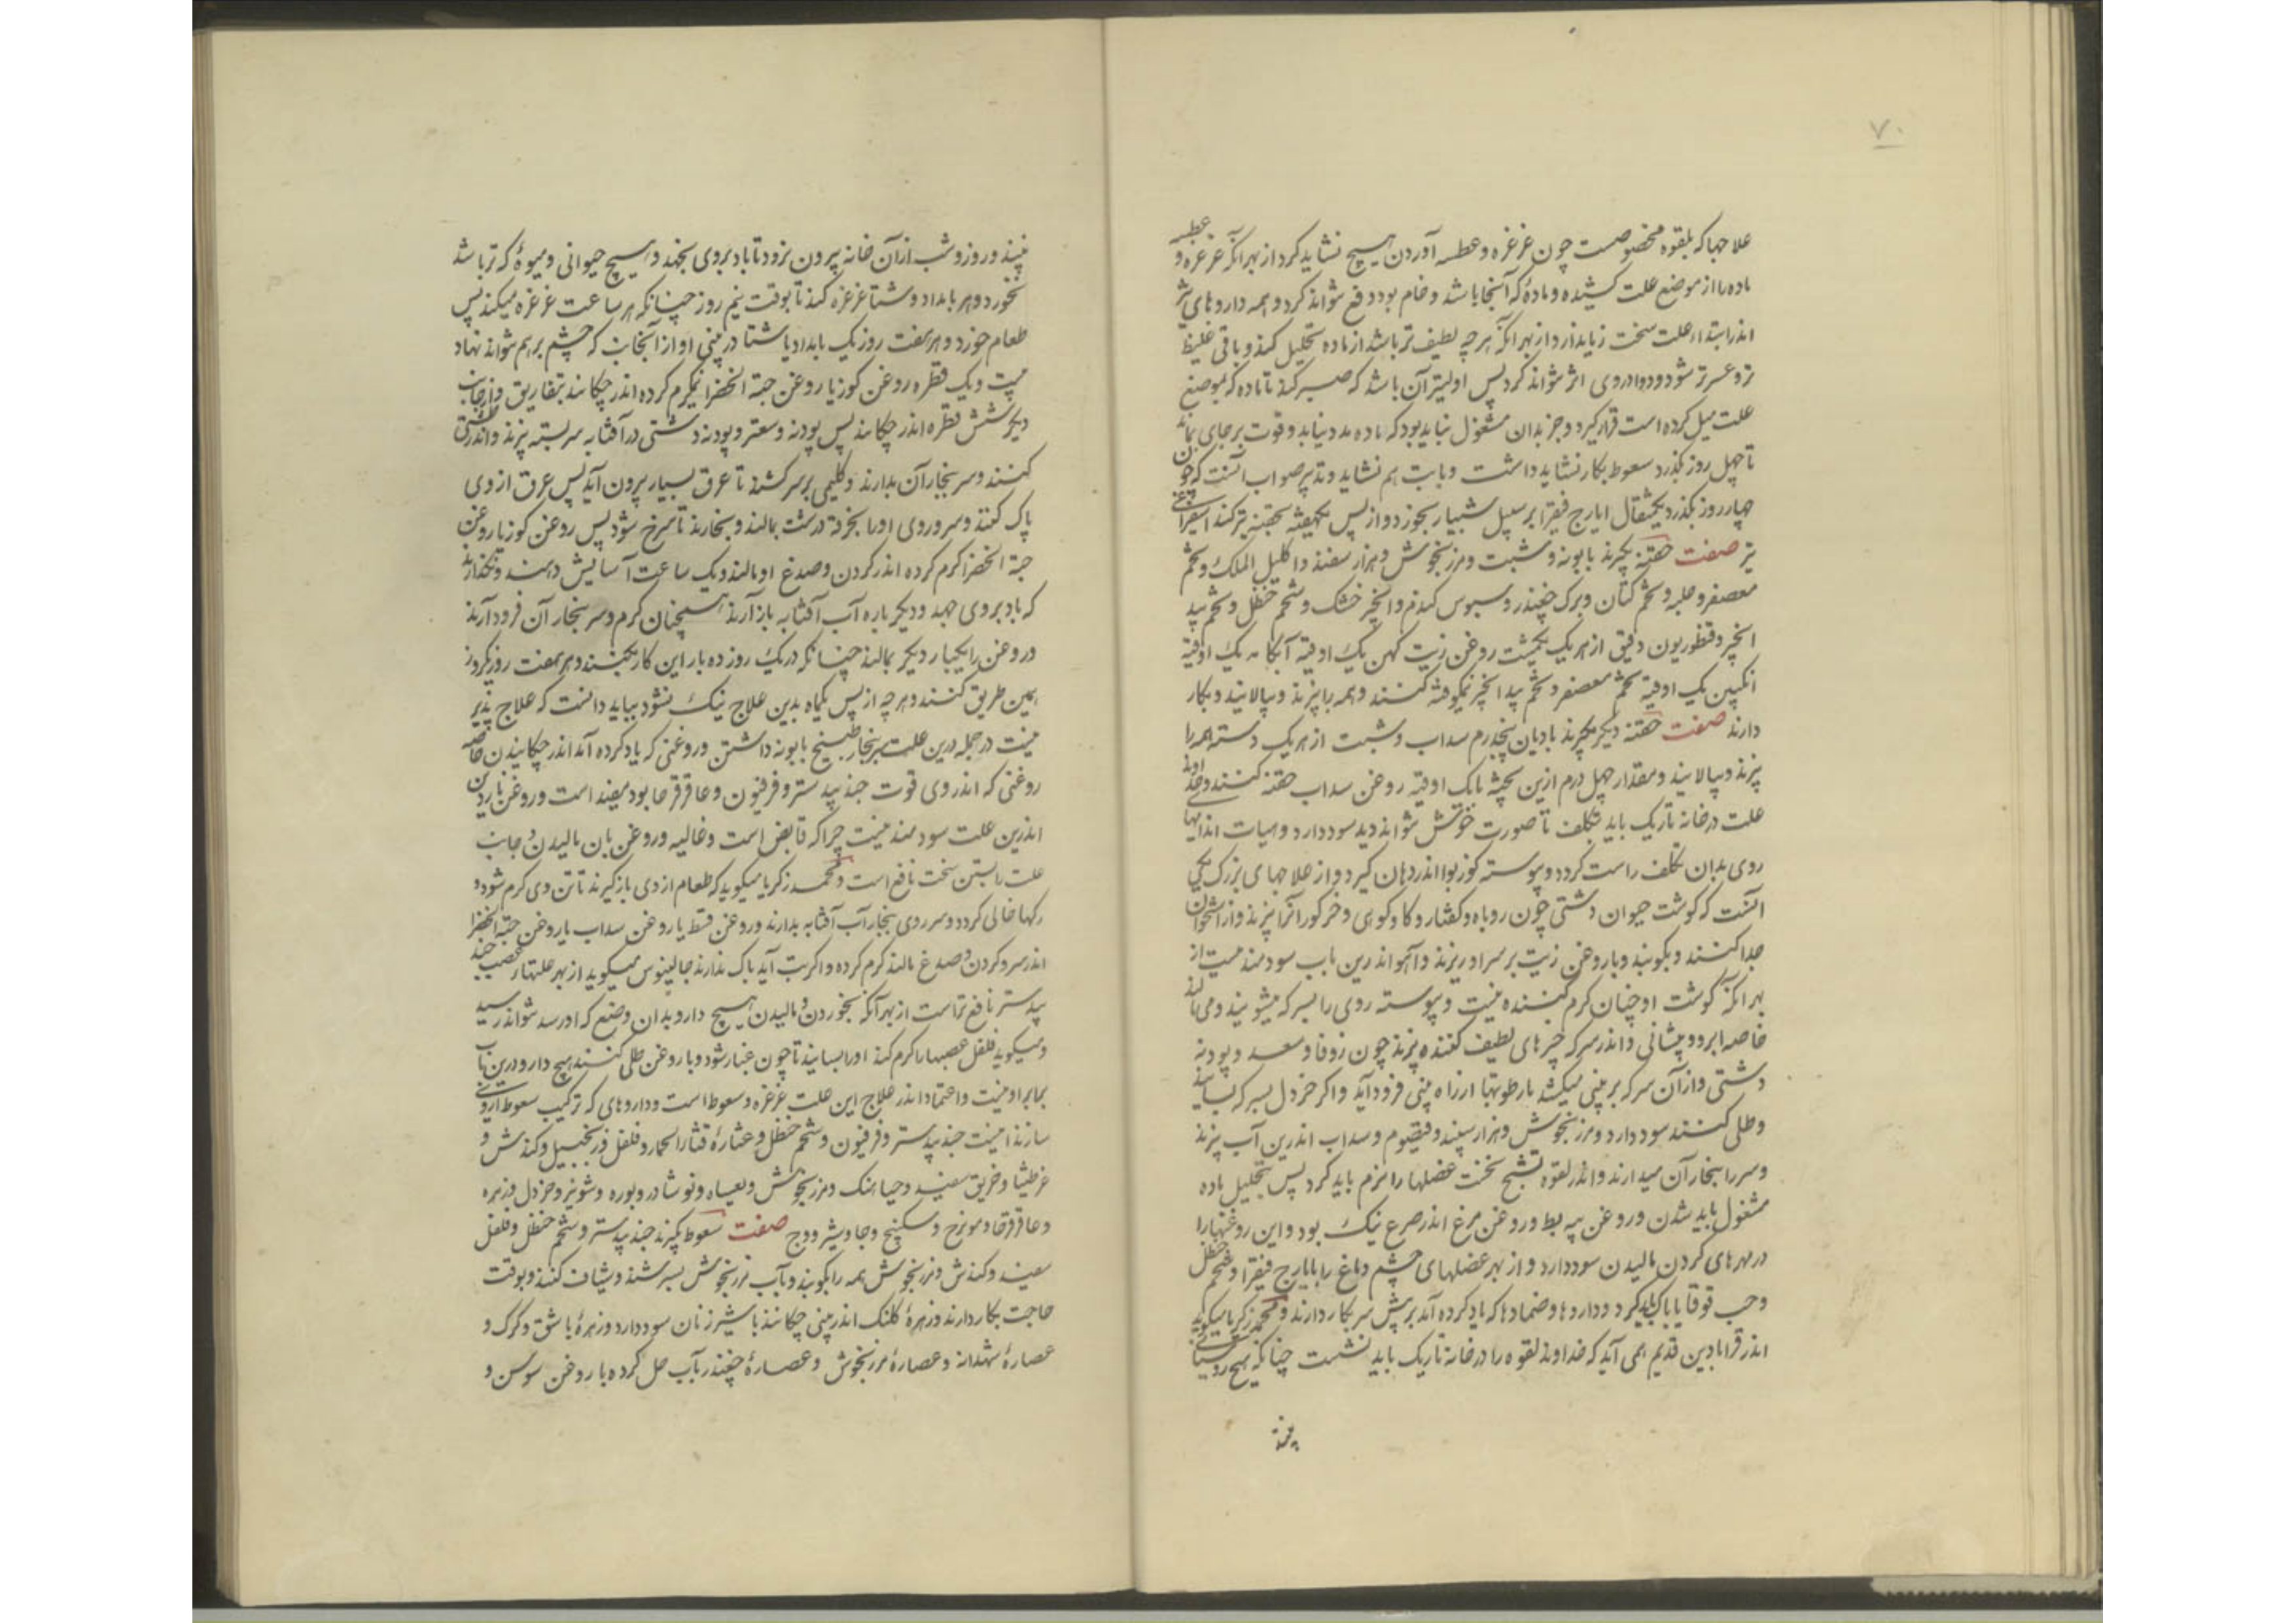 ۷۰
علاجها که بلقوه مخصوصست چون غرغره و عطسه آوردن هیچ نشاید کرد از بهر آنکه غرغره و عطسه
ماده را از موضع علت کشیده و ماده که آنجا باشد و خام بود دفع نتواند کرد و همه داروهای
اندر ابتداء علت سخت زیان دارد از بهر آنکه هر چه لطیف تر باشد از ماده تحلیل کند و باقی غلیظ
تر و عسرتر شود و دوا در وی اثر نتواند کرد پس اولیتر آن باشد که صبر کند تا ماده که بموضع
علت میل کرده است قرار گیرد و جز بدان مشغول نباید بود که ماده مدد نیابد و قوت بر جای بماند
تا چهل روز بگذرد سعوط بکار نشاید داشت و تدبیر صواب آنست که چون
چهار روز بگذرد یکمثقال ایارج فیقرا بر سبیل شبیار بخورد و از پس یکهفته بحقنه تیز کند استفراغ
تیز صفت حقنه بگیرند بابونه و شبت و مرزنجوش و هزار سفند و اکلیل الملک و تخم
معصفر و حلبه و تخم کتان و برک چغندر و سبوس گندم و انجیر خشک و شحم حنظل و تخم بید
انجیر و قنطوریون دقیق از هر یک یکمشت روغن زیت کهن یک اوقیه آبکامه یک اوقیه
انگبین یک اوقیه تخم معصفر و تخم بید انجیر نیم‌کوفته کنند و همه را بپزند و بپالایند و بکار
دارند صفت حقنه دیگر بگیرند بادیان پنجدرم سداب و شبت از هر یک دسته همه را
بپزند و بپالایند و مقدار چهل درم ازین پخته با یک اوقیه روغن سداب حقنه کنند و خداوند
علت در خانه تاریک باید بتکلف تا صورت خویش نتواند دید سود دارد و هیات اندامها
روی بدان تکلف راست گردد و پیوسته گوزبوا اندر دهان گیرد و از علاجهای بزرگ یکی
آنست که گوشت حیوان دشتی چون روباه و کفتار و گاو کوهی و خرگور آنرا بپزند و از استخوان
جدا کنند و بکوبند و با روغن زیت بر سر او ریزند و آهو اندرین باب سودمند نیست از
بهر آنکه گوشت او چنان گرم کننده نیست و پیوسته روی را بسرکه میشویند و می مالند
خاصه ابرو و پیشانی و اندر سرکه چیزهای لطیف کننده بپزند چون زوفا و سعد و پودنه
دشتی و از آن سرکه بر بینی میکشد تا رطوبتها از راه بینی فرود آید و اگر خردل بسرکه بسایند
و طلی کنند سود دارد و مرزنجوش و هزار سپند و قیصوم و سداب اندرین آب بپزند
و سر را ببخار آن میدارند و اندر لقوه تشنج نخست عضلها را نرم باید کرد پس بتحلیل ماده
مشغول باید شدن و روغن پیه بط و روغن مرغ اندر صرع نیک بود و این روغنها را
در مهره‌های گردن مالیدن سود دارد و از بهر عضلهای چشم دماغ را بایارج فیقرا و شحم حنظل
و حب قوقایا پاک باید کرد و داروها و ضمادها که یاد کرده آمد بر پیش سر بکار دارند و محمد زکریا میگوید
اندر قرابادین قدیم همی آید که خداوند لقوه را در خانه تاریک باید نشست چنانکه هیچ روشنائی
بیند و روز و شب از آن خانه بیرون نرود تا باد بروی نجهد و هیچ حیوانی و میوه که تر باشد
نخورد و هر بامداد و شتا غرغره کند تا بوقت نیم روز چنانکه هر ساعت غرغره میکند پس
طعام خورد و هر هفت روز یک بامداد ناشتا در بینی او از آنجانب که چشم بر هم نتواند نهاد
بیست و یک قطره روغن گوز یا روغن حبة الخضرا نیم‌گرم کرده اندر چکانند بتفاریق و از جانب
دیگر شش قطره اندر چکانند پس پودنه و سعتر و پودنه دشتی در آفتابه سربسته بپزند و اندر طشتی
کنند و سر ببخار آن بدارند و گلیمی بر سر کشند تا عرق بسیار بیرون آید پس عرق از وی
پاک کنند و سر و روی او را بخرقه درشت بمالند و بخارند تا سرخ شود پس روغن گوز یا روغن
حبة الخضرا گرم کرده اندر گردن و صدغ او مالند و یک ساعت آسایش دهند و نگذارند
که باد بروی جهد و دیگر باره آب آفتابه باز آرند همچنان گرم و سر ببخار آن فرود آرند
و روغن را یکبار دیگر بمالند چنانکه در یک روز ده بار این کار بکنند و هر هفت روز یکروز
بهمین طریق کنند و هر چه از پس یکماه بدین علاج نیک نشود بباید دانست که علاج پذیر
نیست در جمله درین علت سر ببخار طبیخ بابونه داشتن و روغنی که یاد کرده آمد اندر چکانیدن خاصه
روغنی که اندر وی قوت جندبیدستر و فرفیون و عاقرقرحا بود مفید است و روغن ناردین
اندرین علت سودمند نیست چرا که قابض است و غالیه و روغن بان مالیدن و جانب
علت را بستن سخت نافع است و محمد زکریا میگوید که طعام از وی بازگیرند تا تن وی گرم شود و
رگها خالی گردد و سر و روی ببخار آب آفتابه بدارند و روغن قسط یا روغن سداب یا روغن حبة الخضرا
اندر سر و گردن و صدغ مالند گرم کرده و اگر تب آید باک ندارند جالینوس میگوید از بهر علتهای عصب جند
بیدستر نافع تر است از بهر آنکه بخوردن و مالیدن هیچ دارو بدان وضع که او رسد نتواند رسید
و میگوید فلفل عصبها را گرم کند او را بسایند تا چون غبار شود و با روغن طلی کنند هیچ دارو درین باب
برابر او نیست و اعتماد اندر علاج این علت بر غرغره و سعوط است و داروهای که ترکیب سعوط از وی
سازند اینست جندبیدستر و فرفیون و شحم حنظل و عصاره قثاء الحمار و فلفل و زنجبیل و کندش و
عرطنیثا و خربق سفید و مرزنجوش و نوشادر و بوره و شونیز و خردل و زهره
و عاقرقرحا و مویزج و سکبینج و جاوشیر و وج صفت سعوط بگیرند جندبیدستر و شحم حنظل و فلفل
سفید و کندش و مرزنجوش همه را بکوبند و بآب مرزنجوش بسرشند و شیاف کنند و بوقت
حاجت بکار دارند و زهره کلنک اندر بینی چکانند با شیر زنان سود دارد و زهره باشق و گرگ و
عصاره شهدانه و عصاره مرزنجوش و عصاره چغندر بآب حل کرده با روغن سوسن و